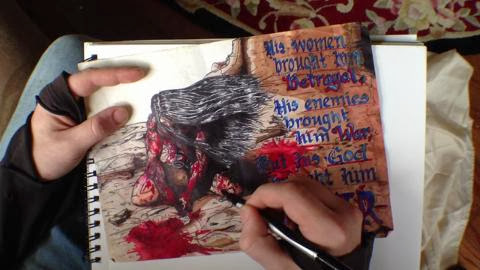 His women
brought him
Betrayal.
His enemies
brought
him War.
But his God
him